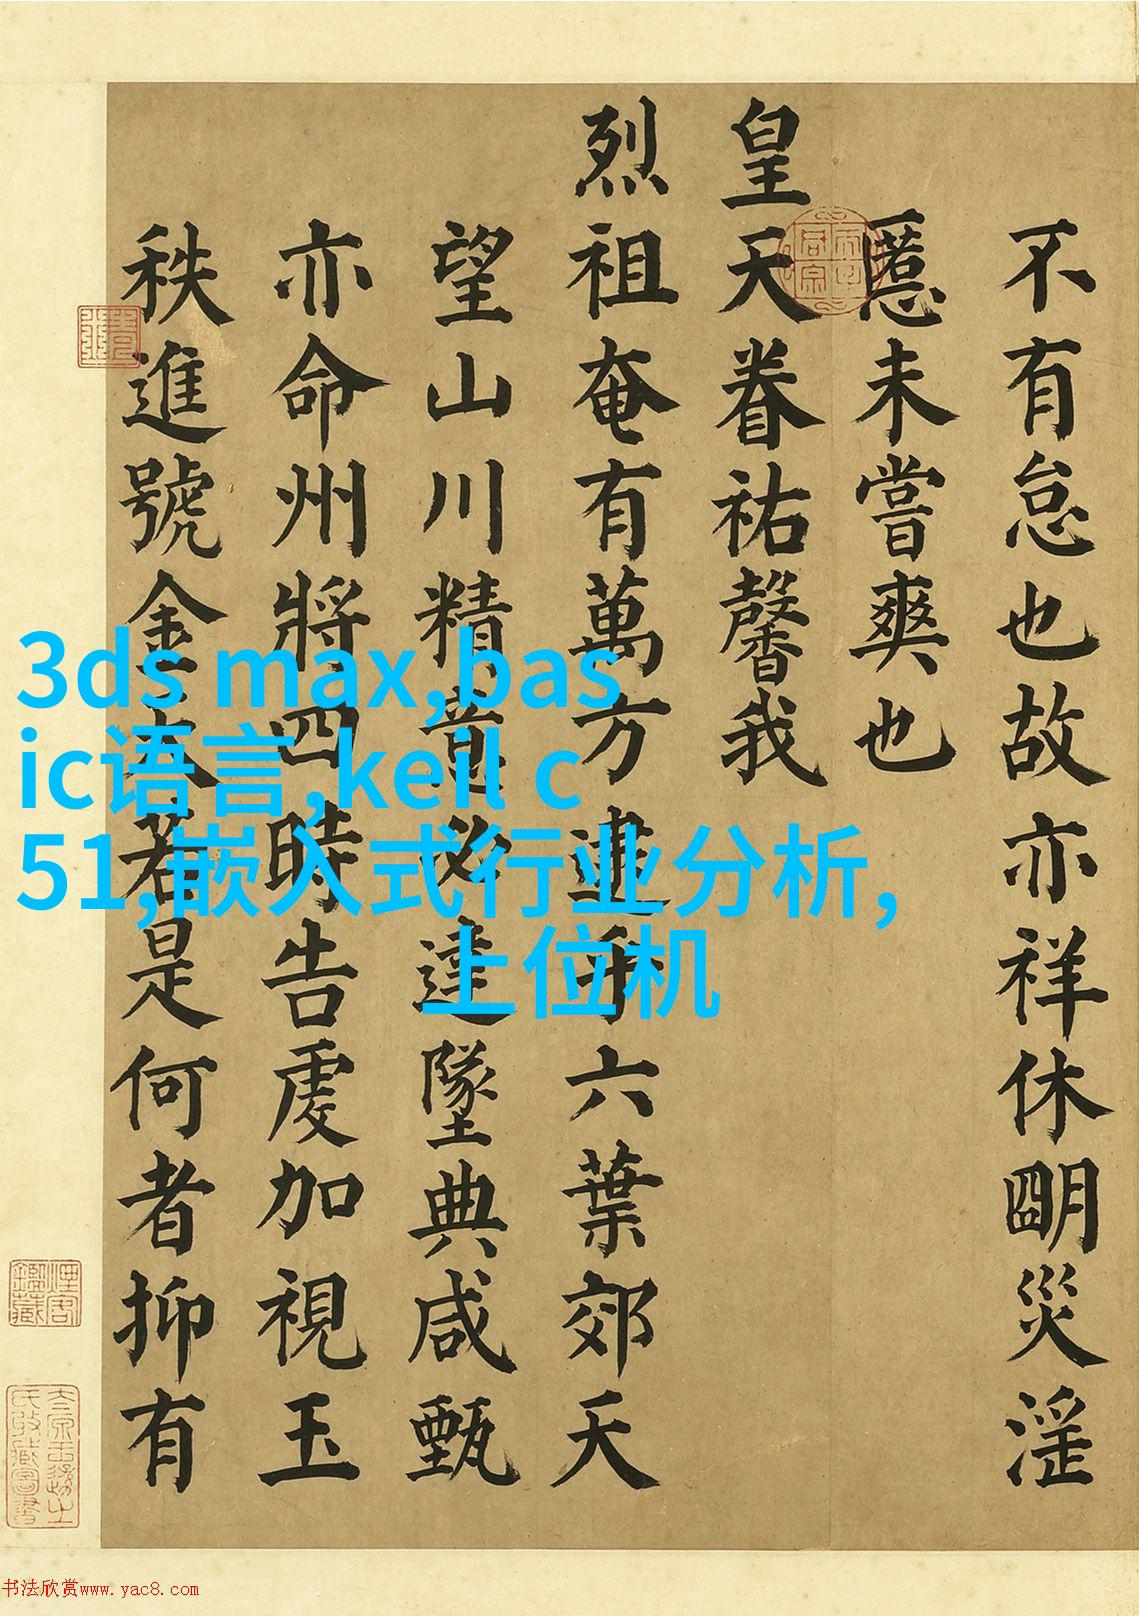 不有怠也故亦祥休朙災淫
慝未嘗爽也
皇天眷祐馨我
烈祖奄有萬方逮乎六葉郊天
望山川精意必達墜典咸甄
亦命州將四時告虔加視玉
秩進號金天若是何者抑有
3ds max,bas
ic语言,keil c
51,嵌入式行业分析,
上位机
书法欣赏www.yac8.com